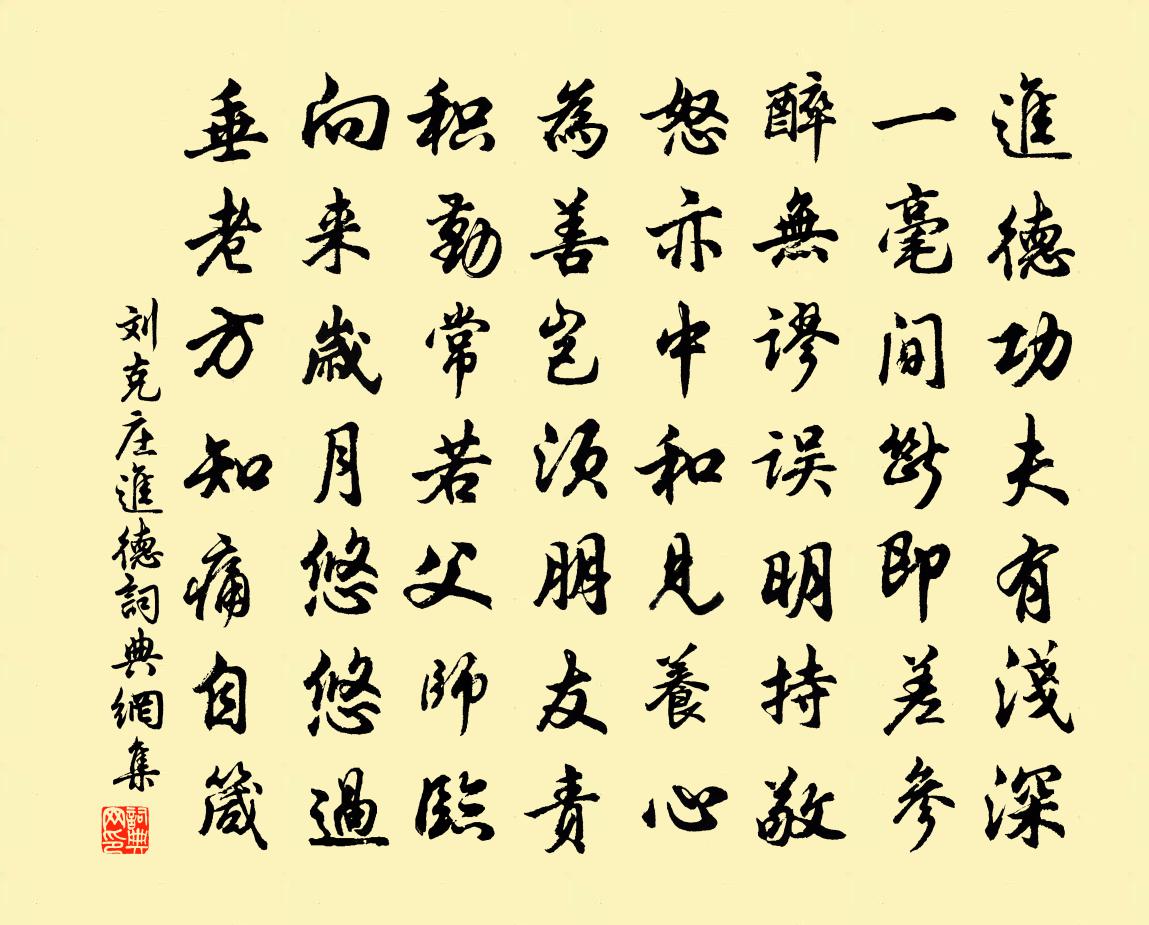 進德功夫有淺深
一毫間斷即差參
醉無謬误明持敬
怒亦中和見養心
為善岂須朋友責
积勤常若父師臨
向来歲月悠悠過
垂老方知痛自箴
刘克庄進德詞典網集
詞典網印